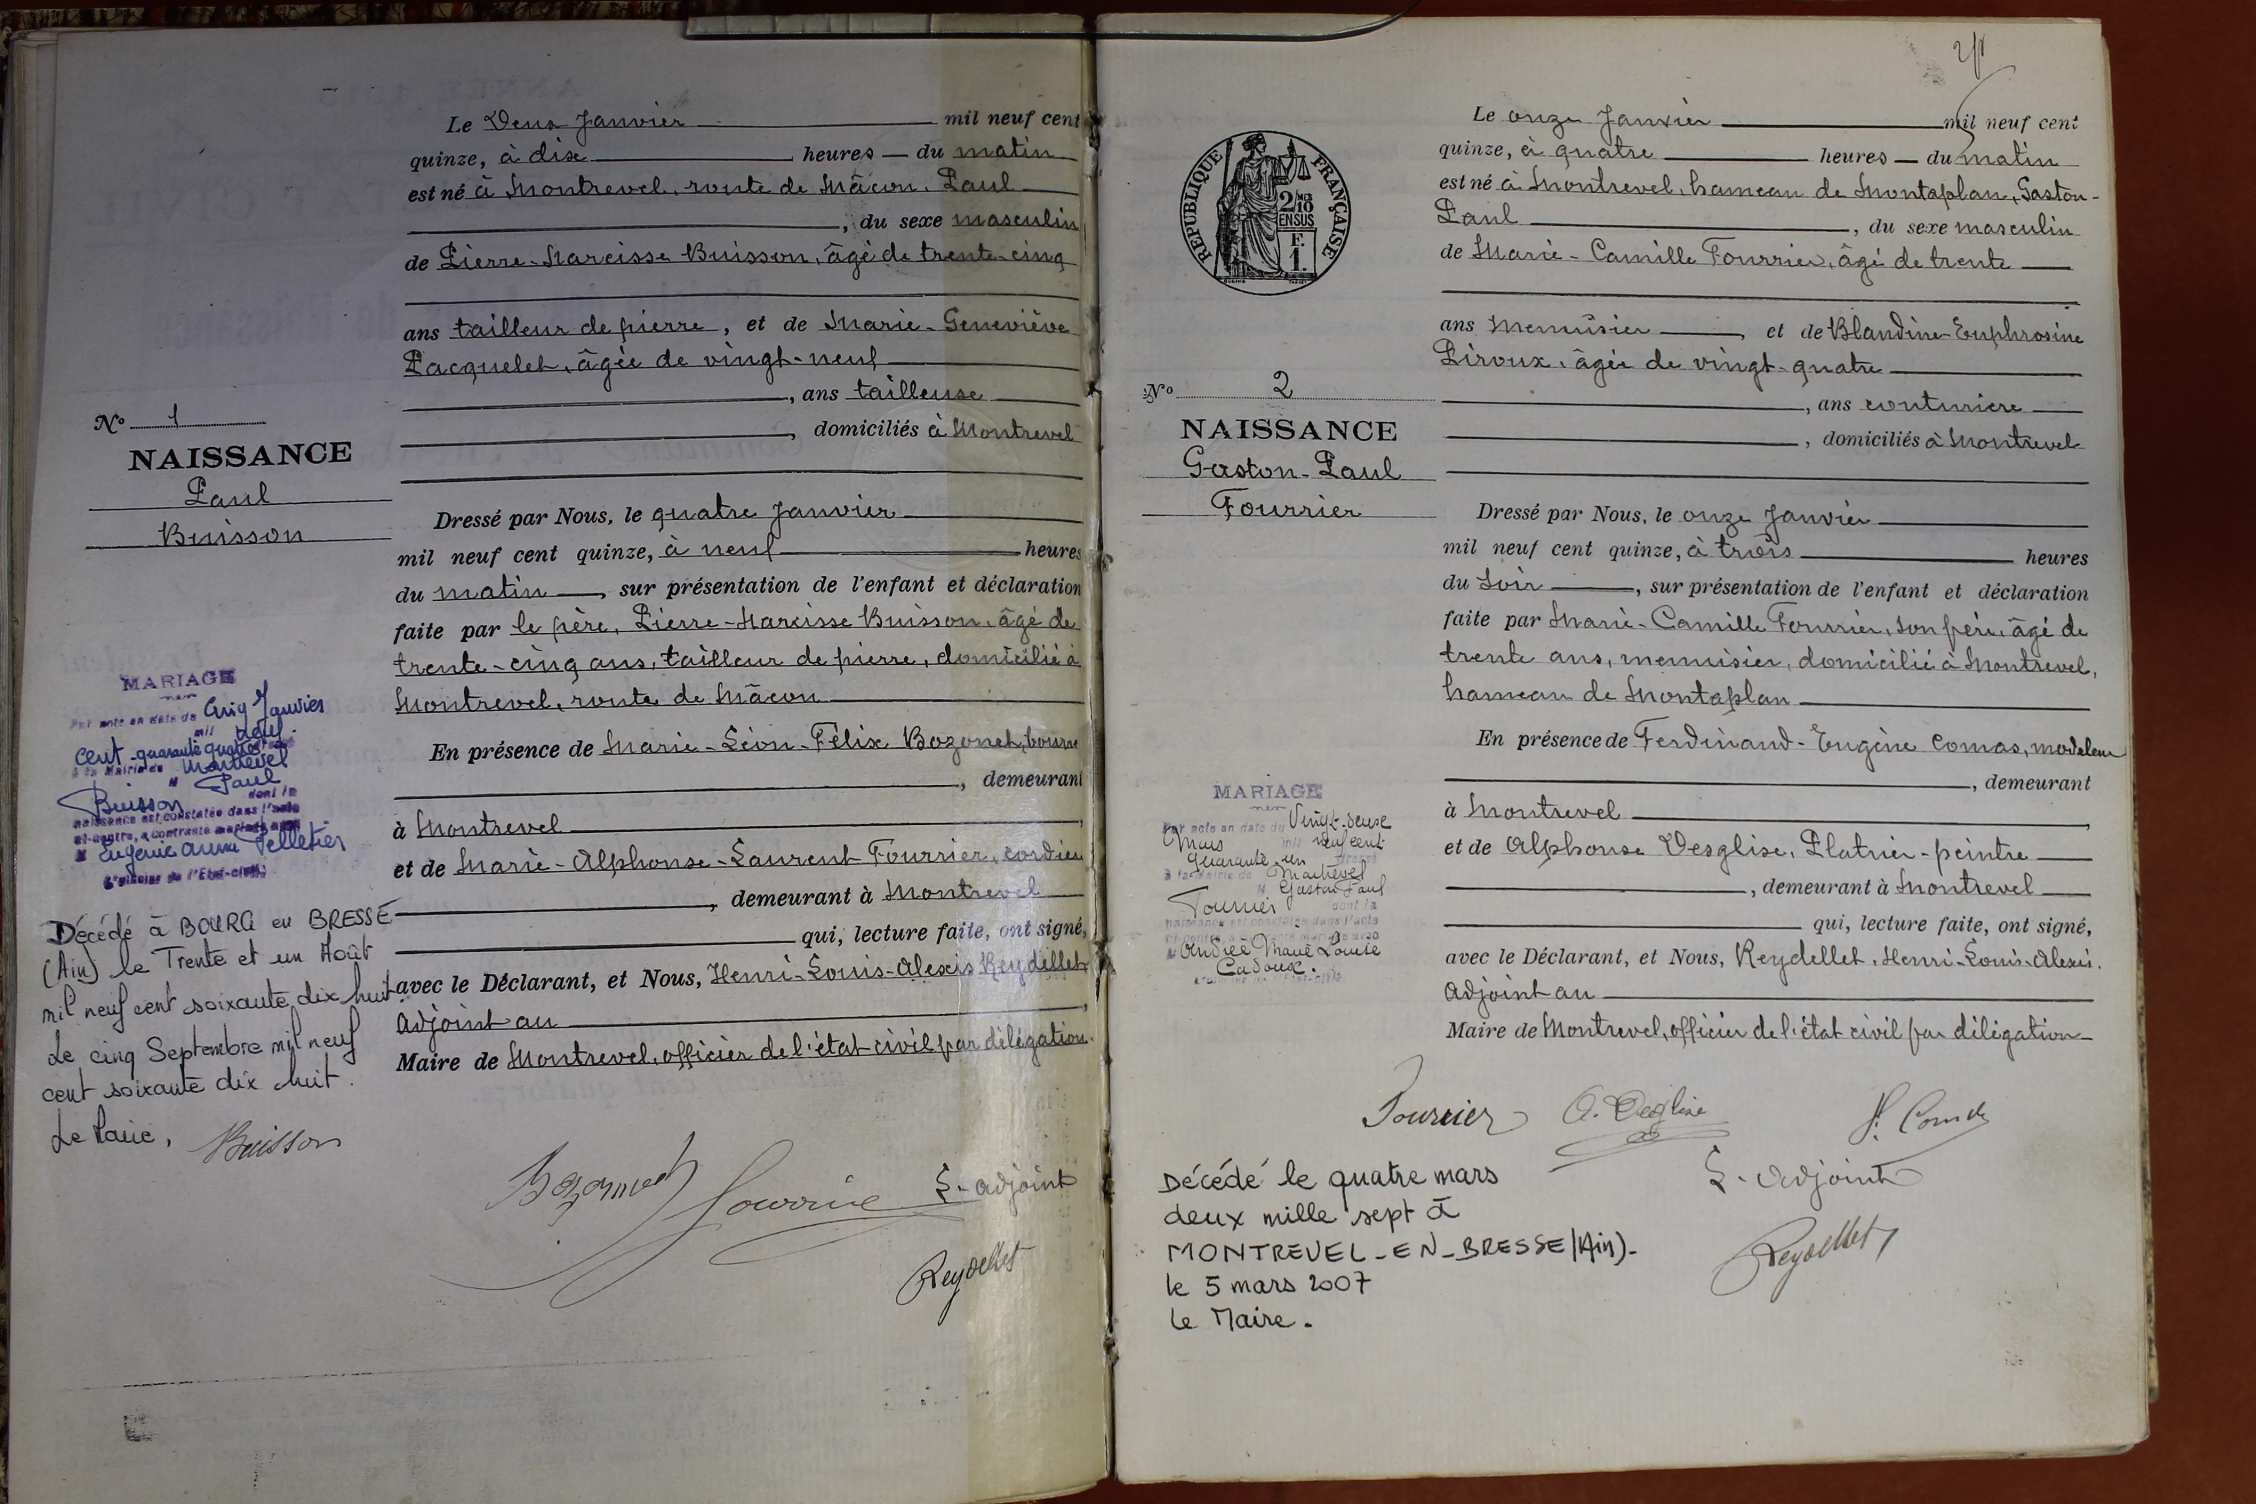 Le Deux Janvier mil neuf cent
quinze, à dix heures du matin
est né à Montrevel, route de Mâcon, Paul
, du sexe masculin
de Pierre-Narcisse Buisson, âgé de trente-cinq
ans tailleur de pierre, et de Marie-Geneviève
Pacquelet, âgée de vingt-neuf
, ans tailleuse
, domiciliés à Montrevel
No 1
NAISSANCE
Paul
Buisson
Dressé par Nous, le quatre Janvier
mil neuf cent quinze, à neuf heures
du matin, sur présentation de l'enfant et déclaration
faite par le père, Pierre-Narcisse Buisson, âgé de
trente-cinq ans, tailleur de pierre, domicilié à
Montrevel, route de Mâcon
En présence de Marie-Léon-Félix Bozonet,
, demeurant
à Montrevel
et de Marie-Alphonse-Laurent Fourrier, cordier
, demeurant à Montrevel
qui, lecture faite, ont signé,
avec le Déclarant, et Nous, Henri-Louis-Alexis Reydellet,
Adjoint au
Maire de Montrevel, officier de l'état civil par délégation.
MARIAGE
Par acte en date du Cinq Janvier
mil neuf
cent quarante quatre
à la Mairie de Montrevel
M Paul
Buisson dont la
naissance est constatée dans l'acte
ci-contre, a contracté mariage avec
M Eugénie Anna Pelletier
L'officier de l'Etat-civil
Décédé à BOURG en BRESSE
(Ain) le Trente et un Août
mil neuf cent soixante dix huit.
Le cinq Septembre mil neuf
cent soixante dix huit.
Le Maire,
Buisson
Bozonnet Fourrier L'adjoint
Reydellet
2
Le onze Janvier mil neuf cent
quinze, à quatre heures du matin
est né à Montrevel, hameau de Montaplan, Gaston-
Paul, du sexe masculin
de Marie-Camille Fourrier, âgé de trente
ans Menuisier et de Blandine-Euphrosine
Piroux, âgée de vingt-quatre
, ans couturière
, domiciliés à Montrevel
RÉPUBLIQUE FRANÇAISE
2/10 EN SUS
F. 1.
No 2
NAISSANCE
Gaston-Paul
Fourrier
Dressé par Nous, le onze Janvier
mil neuf cent quinze, à trois heures
du Soir, sur présentation de l'enfant et déclaration
faite par Marie-Camille Fourrier, son père, âgé de
trente ans, menuisier, domicilié à Montrevel,
hameau de Montaplan
En présence de Ferdinand-Eugène Comas, modeleur
, demeurant
à Montrevel
et de Alphonse Desglise, Platrier-peintre
, demeurant à Montrevel
qui, lecture faite, ont signé,
avec le Déclarant, et Nous, Reydellet, Henri-Louis-Alexis.
Adjoint au
Maire de Montrevel, officier de l'état civil par délégation
MARIAGE
Par acte en date du Vingt-deux
Mars mil neuf cent
quarante-un
à la Mairie de Montrevel
M Gaston Paul
Fourrier dont la
naissance est constatée dans l'acte
ci-contre, a contracté mariage avec
M Andrée Marie Louise
Cadoux.
Fourrier A. Desglise F. Comas
L'adjoint
Reydellet
Décédé le quatre mars
deux mille sept à
MONTREVEL-EN-BRESSE (Ain)-
le 5 mars 2007
Le Maire.